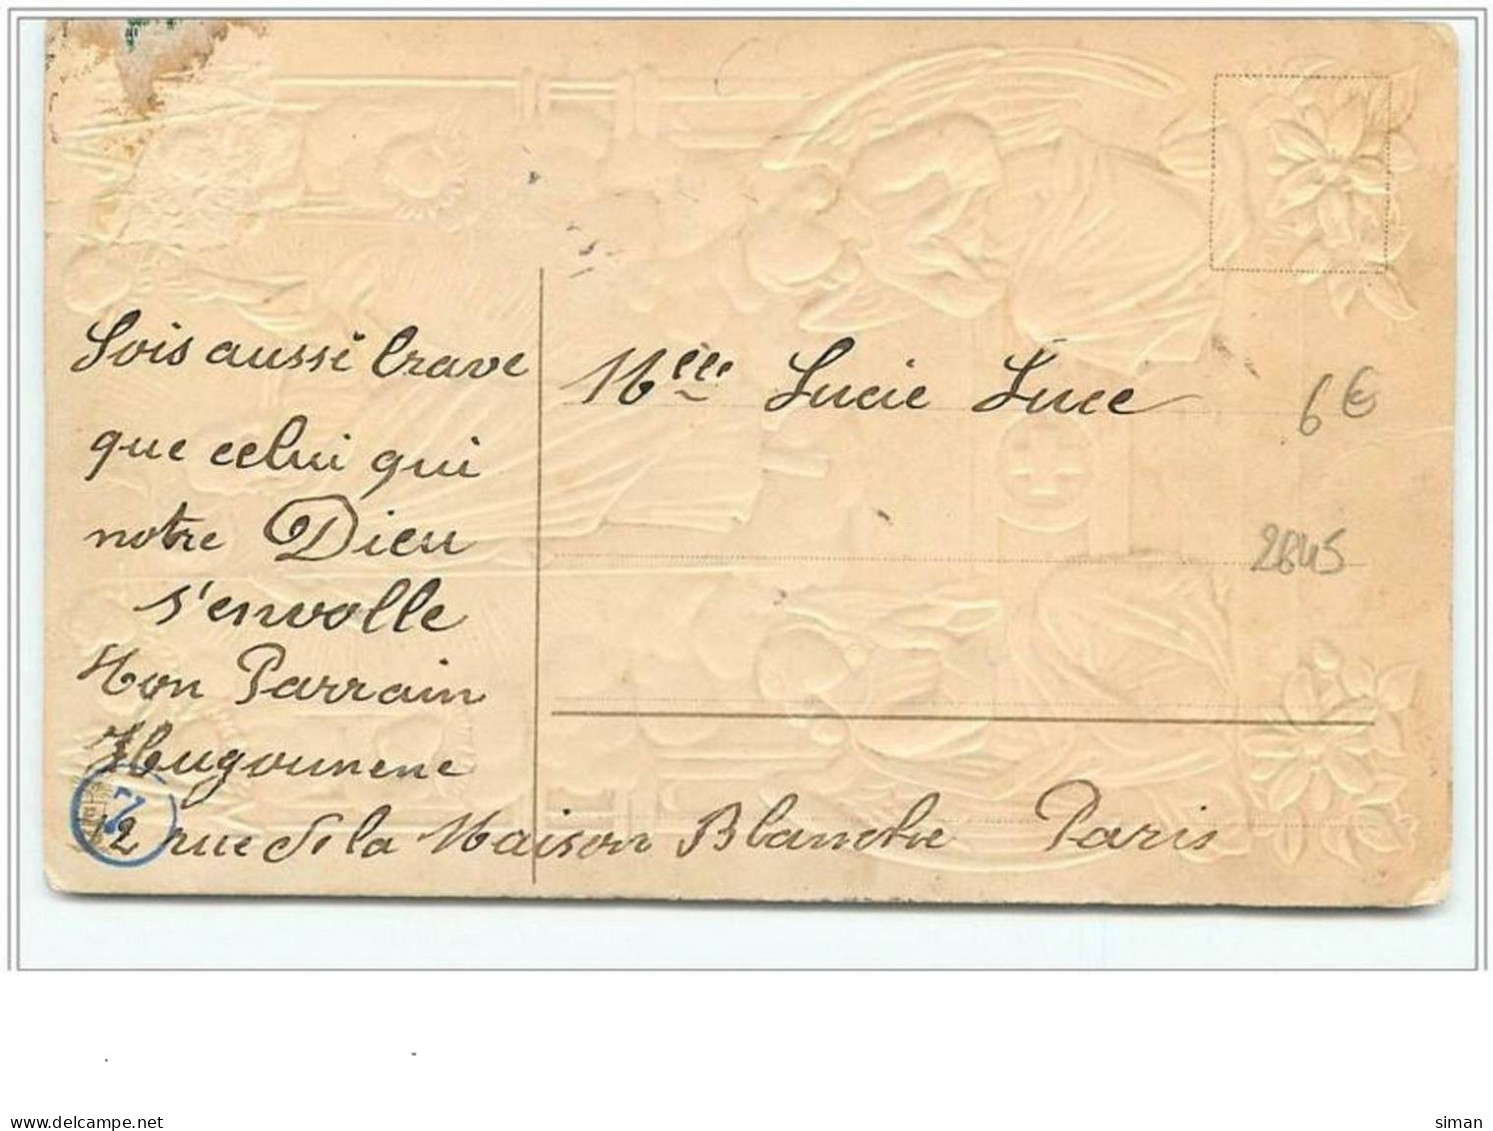 Sois aussi brave
que celui qui
notre Dieu
s'envolle
Mon Parrain
Hugounene
12 rue de la Maison Blanche Paris
Melle Lucie Luce
6€
2645
7
siman
www.delcampe.net